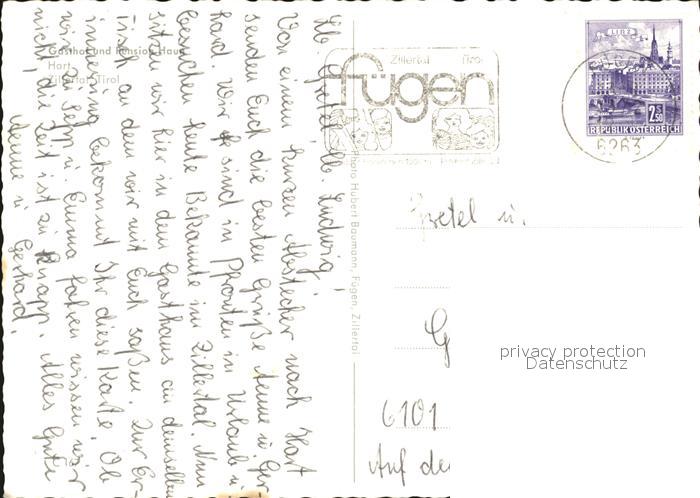 Gasthof und Pension Haun
Hart
Zillertal, Tirol
Lb. Gretel lb. Ludwig!
Von einem kurzen Abstecher nach Hart
senden Euch die besten Grüße Anne u. Ger-
hard. Wir sind in Pfronten in Urlaub u.
besuchen heute Bekannte im Zillertal. Nun
sitzen wir hier in dem Gasthaus an demselben
Tisch an dem wir mit Euch saßen. Zur Er-
innerung bekommt Ihr diese Karte. Ob
wir zu u. Emma fahren wissen wir
nicht, die Zeit ist zu knapp. Alles Gute
Anne u. Gerhard.
Photo Hubert Baumann, Fügen, Zillertal
Zillertal Tirol
fügen
6263
LINZ
2.50
REPUBLIK ÖSTERREICH
Gretel u.
G
6101
Auf de
privacy protection
Datenschutz